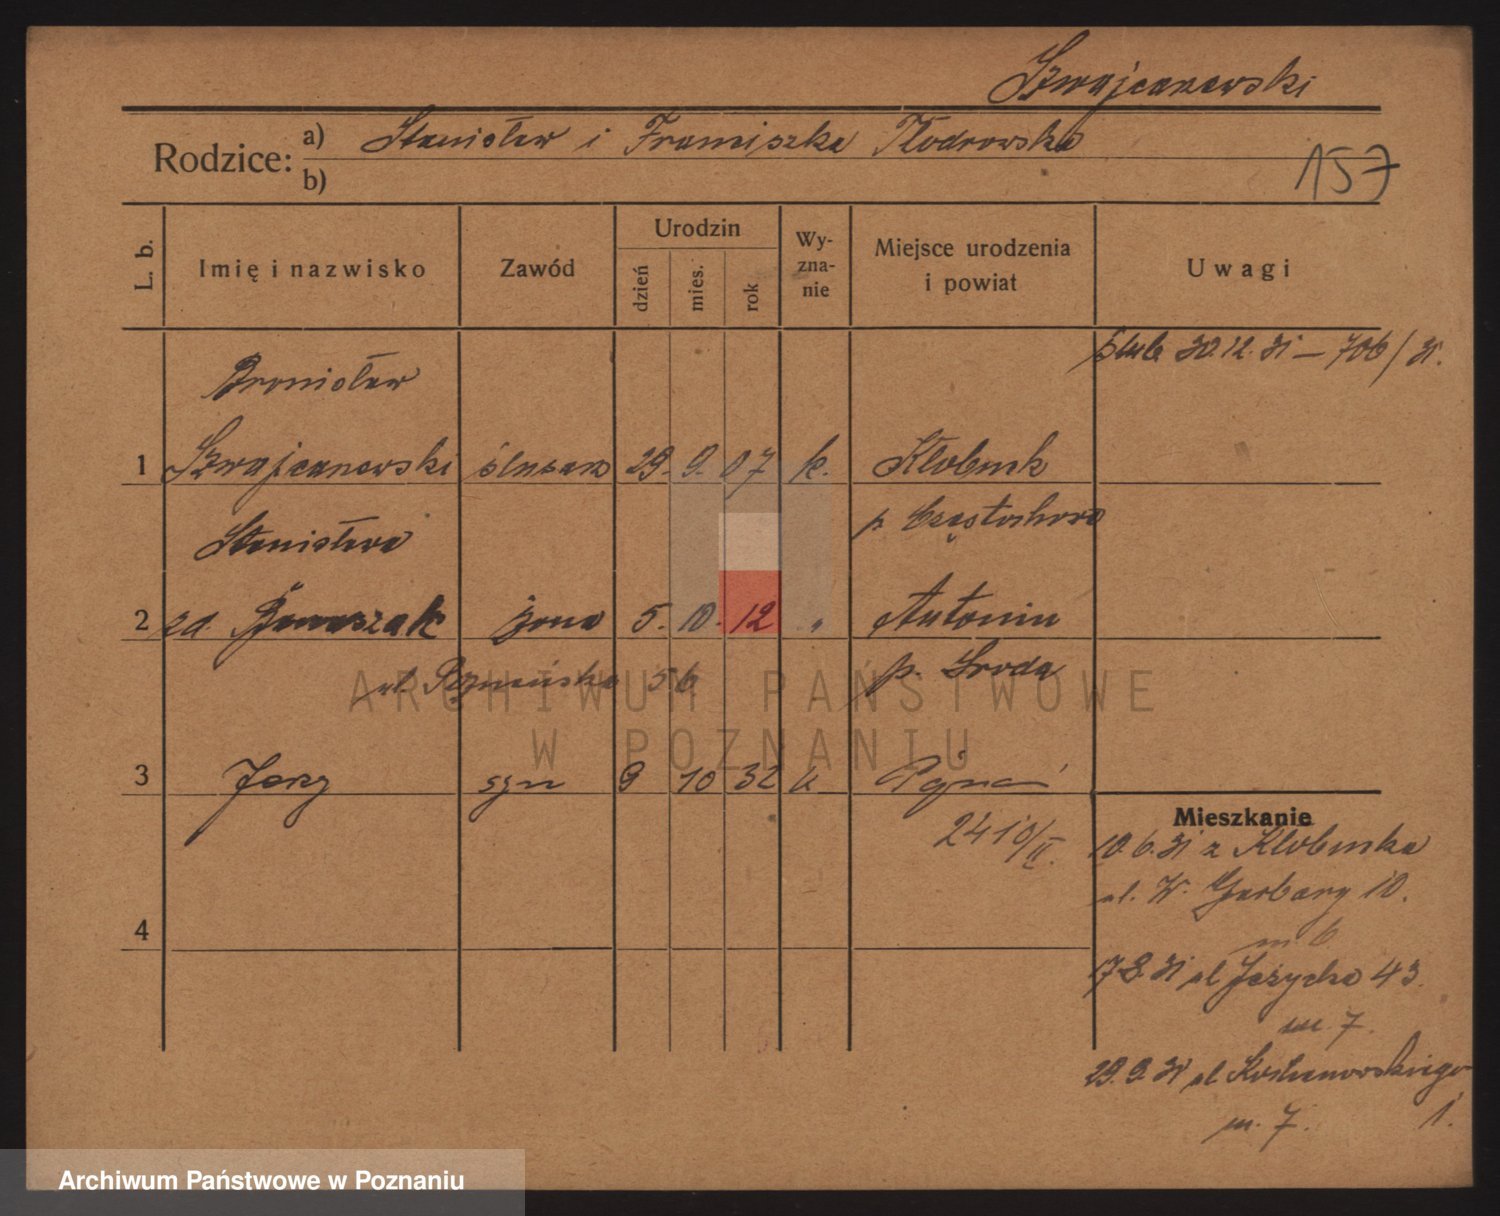 Szwajcanowski
Rodzice: a) Stanisław i Franciszka
b)
157
L. b.
Imię i nazwisko
Zawód
Urodzin
dzień
mies.
rok
Wy-
zna-
nie
Miejsce urodzenia
i powiat
Uwagi
ślub 30.12.31 — 706/31.
Bronisław
1 Szwajcanowski ślusarz 29. 9. 07 k. Kłobuck
p. Częstochowa
Stanisława
2 zd. żona 5. 10. 12 " Antonin
p. Środa
ul. Poznańska 56
3 Jerzy syn 9 10 32 k Poznań
2410/II.
4
Mieszkanie
10.6.31 z Kłobucka
ul. W. Garbary 10.
m 6
17.8.31 ul Jeżycka 43.
m. 7.
29.9.31 ul
1.
m. 7.
ARCHIWUM PAŃSTWOWE
W POZNANIU
Archiwum Państwowe w Poznaniu